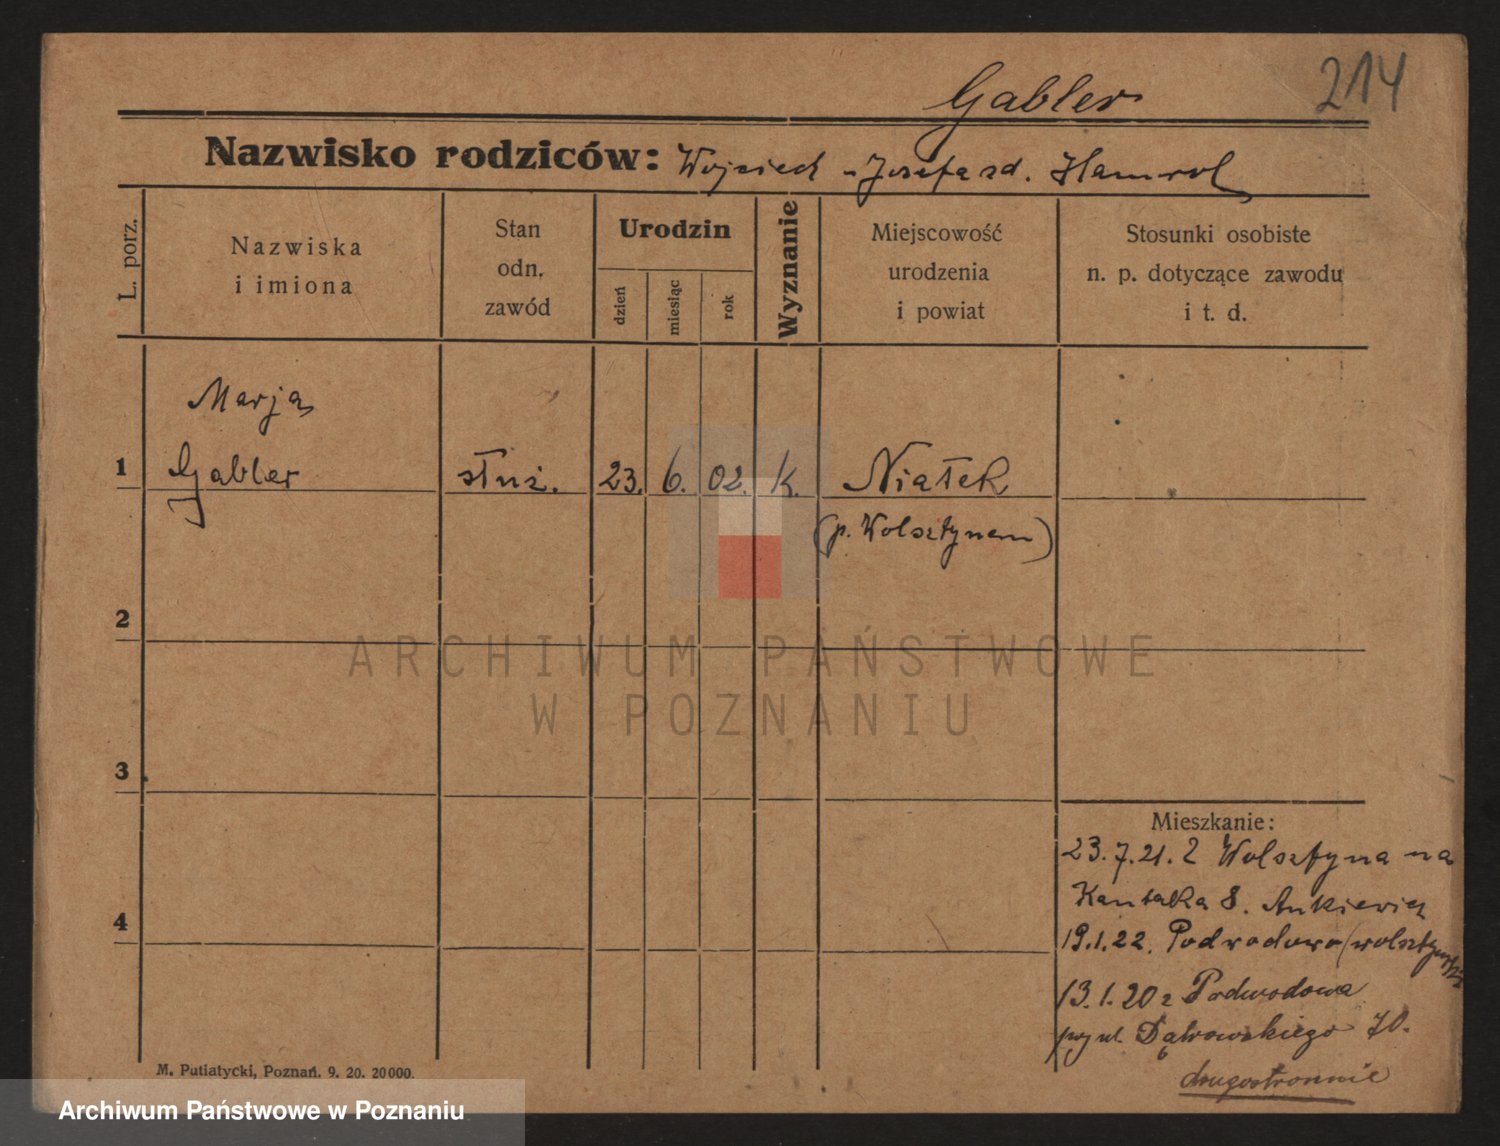 214
Gabler
Nazwisko rodziców: Wojciech i Józefa zd. Hamrol
L. porz.
Nazwiska
i imiona
Stan
odn.
zawód
Urodzin
dzień
miesiąc
rok
Wyznanie
Miejscowość
urodzenia
i powiat
Stosunki osobiste
n. p. dotyczące zawodu
i t. d.
Marja
1 Gabler służ. 23. 6. 02. k. Niałek
(p. Wolsztynem)
2
3
4
Mieszkanie:
23.7.21. z Wolsztyna na
Kantaka 8. Ankiewicz
19.1.22. Podwodowo
13.1.20 z Podwodowa
przy ul. Dąbrowskiego 70.
drugostronnie
M. Putiatycki, Poznań. 9. 20. 20000.
ARCHIWUM PAŃSTWOWE
W POZNANIU
Archiwum Państwowe w Poznaniu